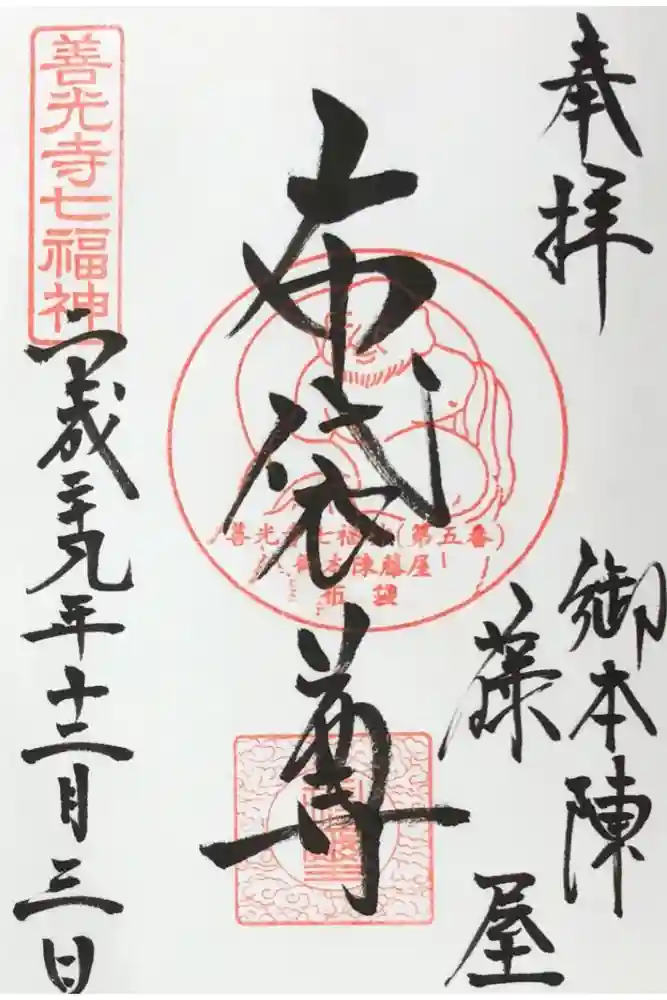 奉拝
御本陣
藤屋
布袋尊
善光寺七福神(第五番)
御本陳藤屋
布袋
善光寺七福神
平成二十九年十二月三日